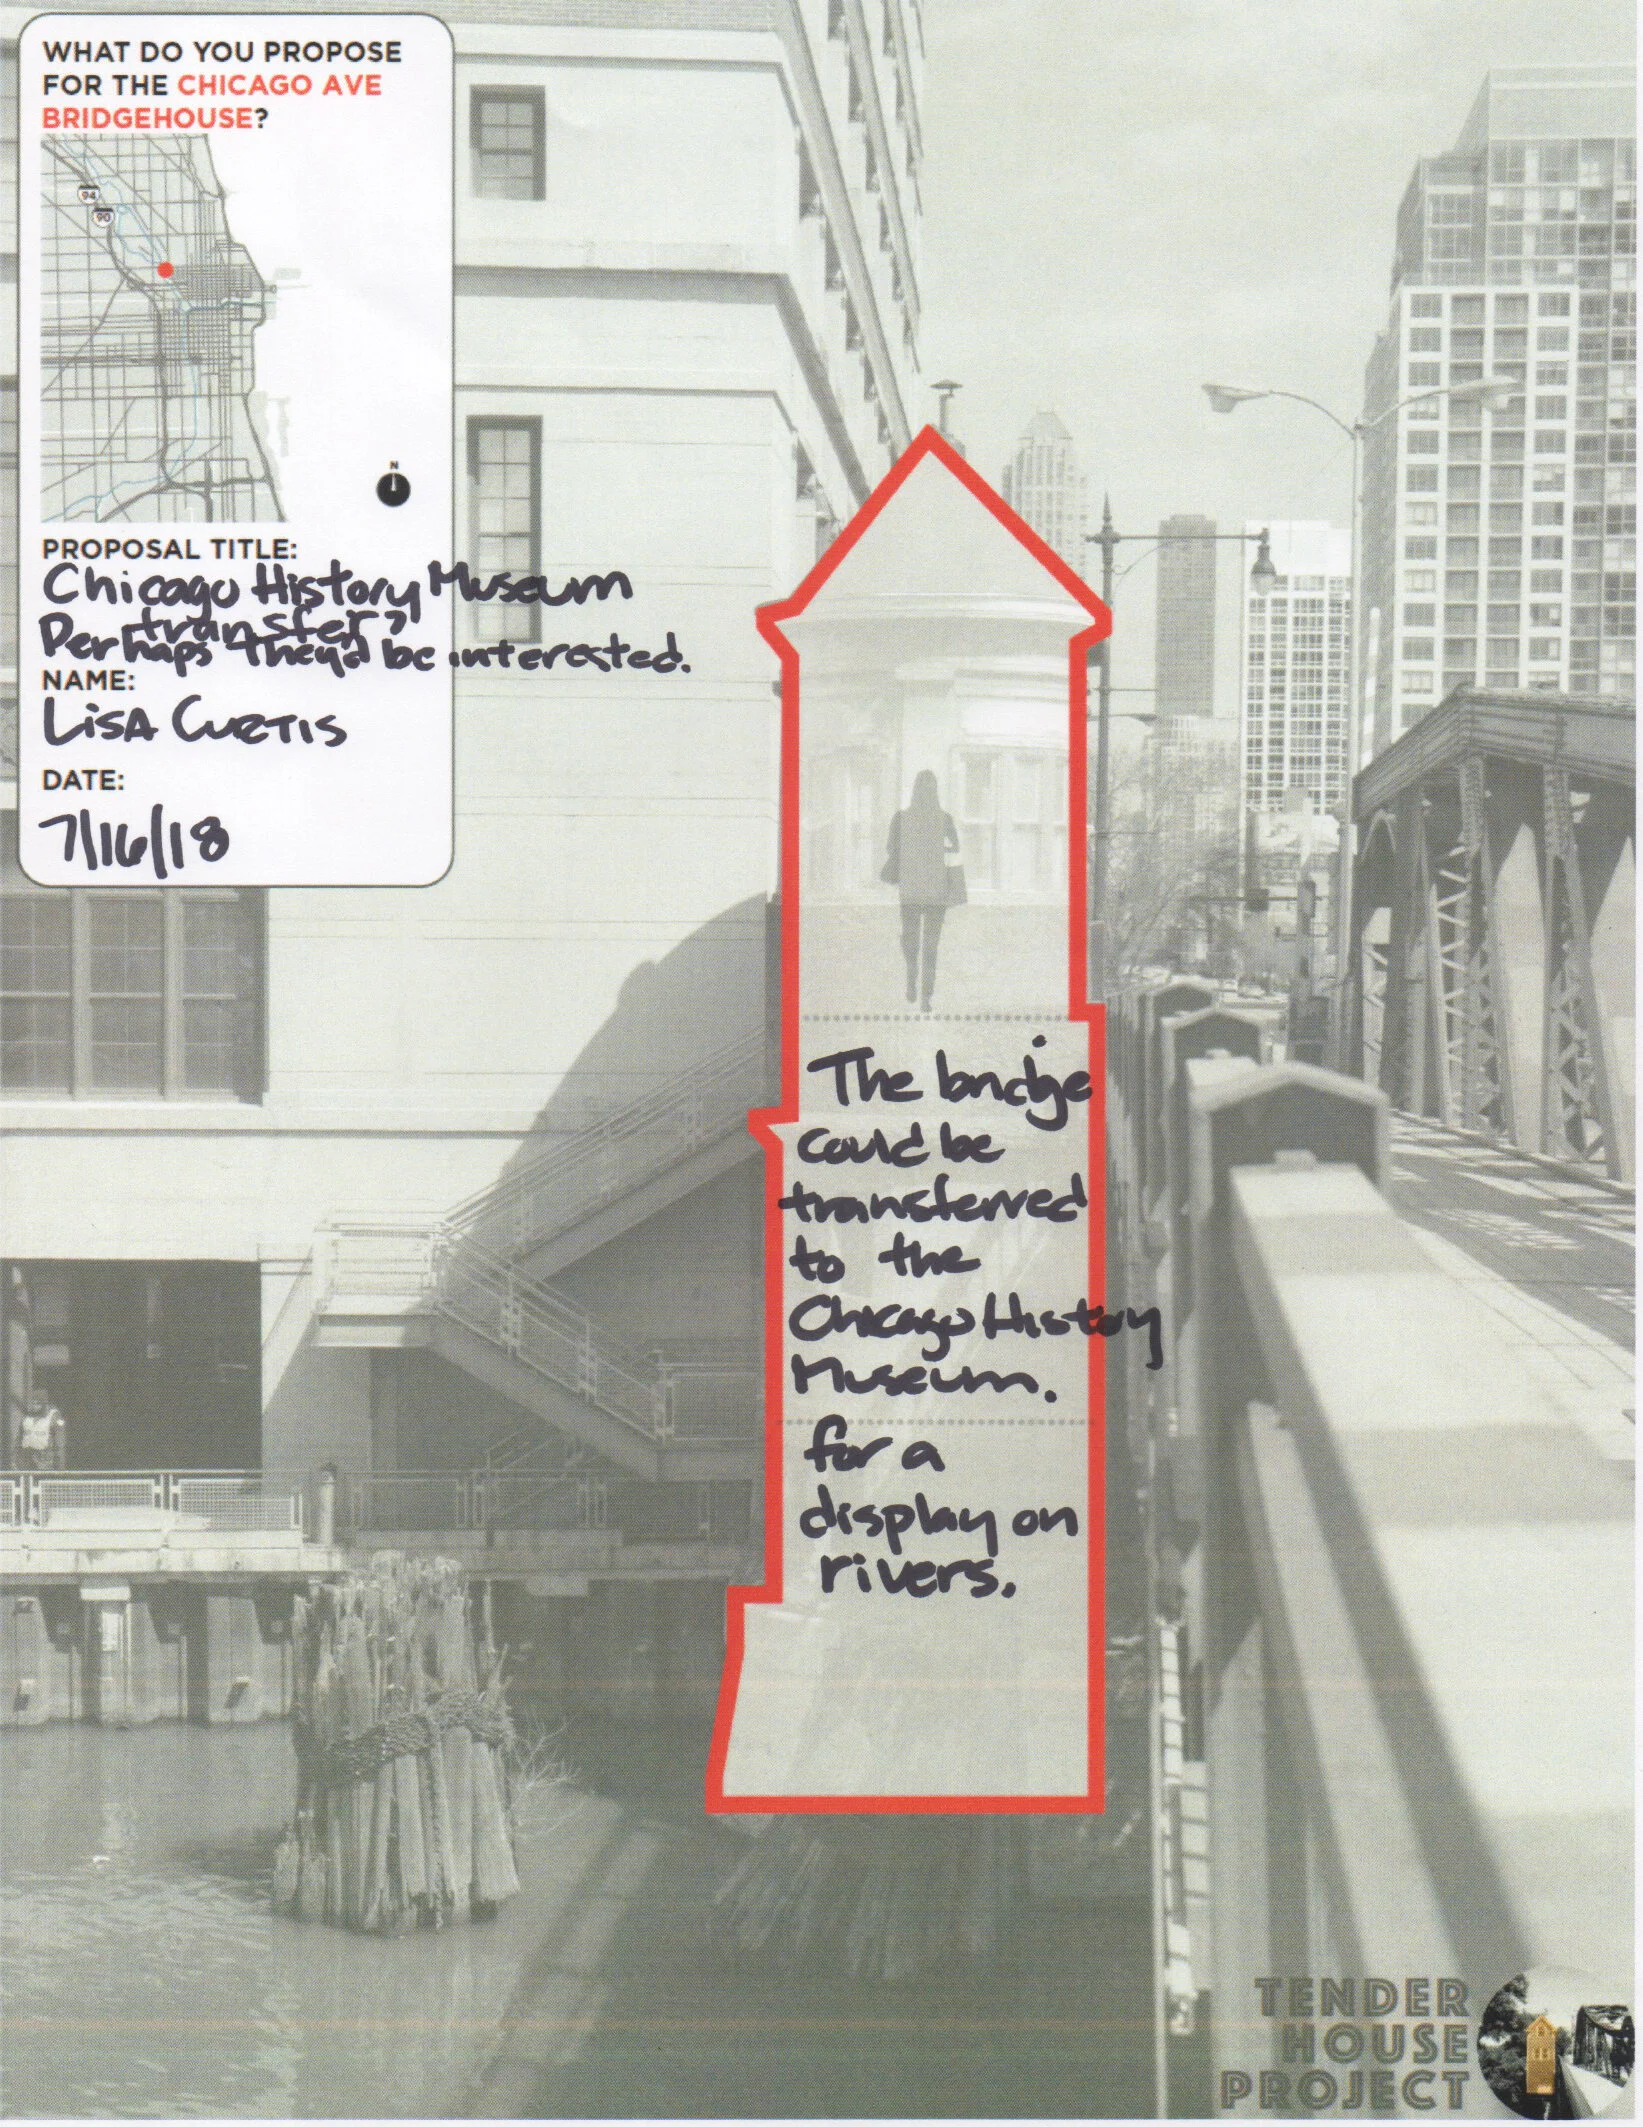 WHAT DO YOU PROPOSE
FOR THE CHICAGO AVE
BRIDGEHOUSE?
94
90
N
PROPOSAL TITLE:
Chicago History Museum
transfer?
Perhaps they'd be interested.
NAME:
LISA CURTIS
DATE:
7/16/18
The bridge
could be
transferred
to the
Chicago History
Museum.
for a
display on
rivers.
TENDER
HOUSE
PROJECT